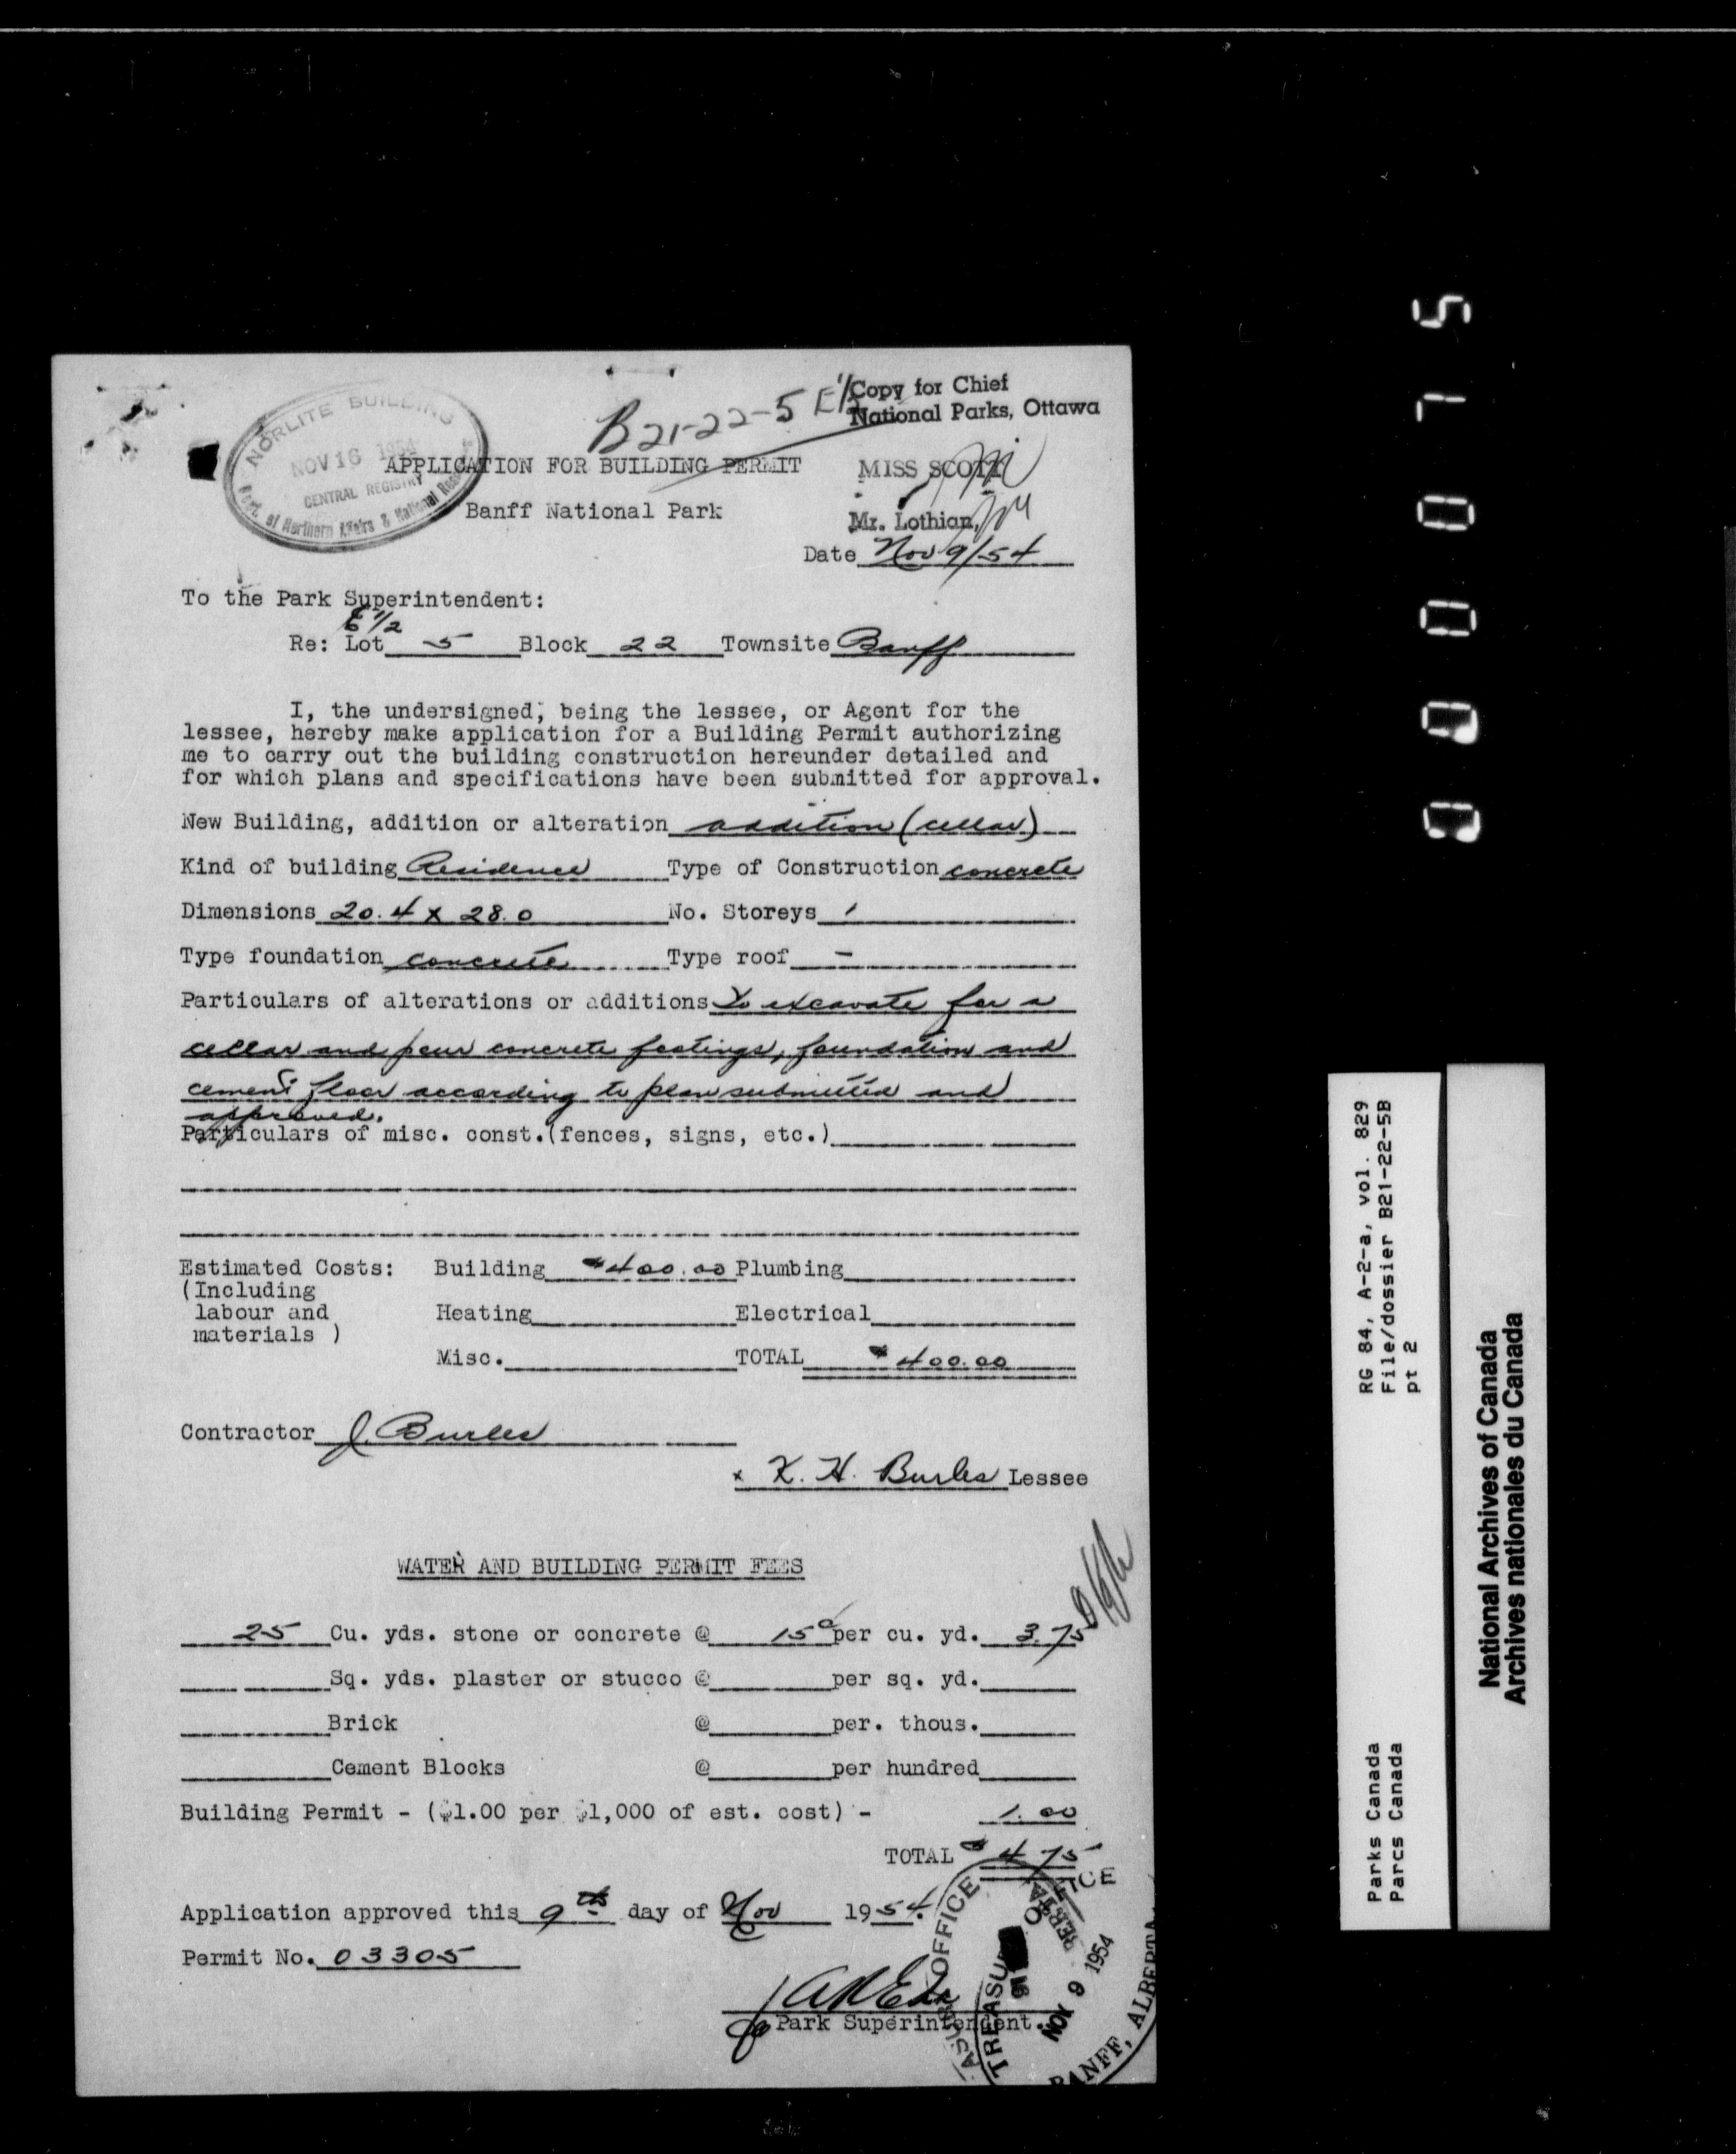 B21-22-5 E½
Copy for Chief
National Parks, Ottawa
NORLITE BUILDING
NOV 16 1954
CENTRAL REGISTRY
Dept. of Northern Affairs & National Resources
APPLICATION FOR BUILDING PERMIT
MISS SCOTT
Banff National Park
Mr. Lothian,
Date Nov 9/54
To the Park Superintendent:
E 1/2
Re: Lot 5 Block 22 Townsite Banff
I, the undersigned, being the lessee, or Agent for the
lessee, hereby make application for a Building Permit authorizing
me to carry out the building construction hereunder detailed and
for which plans and specifications have been submitted for approval.
New Building, addition or alteration addition (cellar)
Kind of building Residence Type of Construction concrete
Dimensions 20.4 x 28.0 No. Storeys 1
Type foundation concrete Type roof —
Particulars of alterations or additions To excavate for a
cellar and pour concrete footings, foundation and
cement floor according to plan submitted and
approved.
Particulars of misc. const.(fences, signs, etc.)
Estimated Costs: Building $400.00 Plumbing
(Including
labour and Heating Electrical
materials )
Misc. TOTAL $400.00
Contractor J. Burles
x K. H. Burles Lessee
WATER AND BUILDING PERMIT FEES
25 Cu. yds. stone or concrete @ 15¢ per cu. yd. 3.75
Sq. yds. plaster or stucco @ per sq. yd.
Brick @ per. thous.
Cement Blocks @ per hundred
Building Permit - ($1.00 per $1,000 of est. cost) - 1.00
TOTAL $4.75
Application approved this 9th day of Nov 1954.
Permit No. 03305
Park Superintendent.
TREASURY OFFICE
NOV 9 1954
BANFF, ALBERTA
RG 84, A-2-a, vol. 829
File/dossier B21-22-5B
pt 2
Parks Canada
Parcs Canada
National Archives of Canada
Archives nationales du Canada